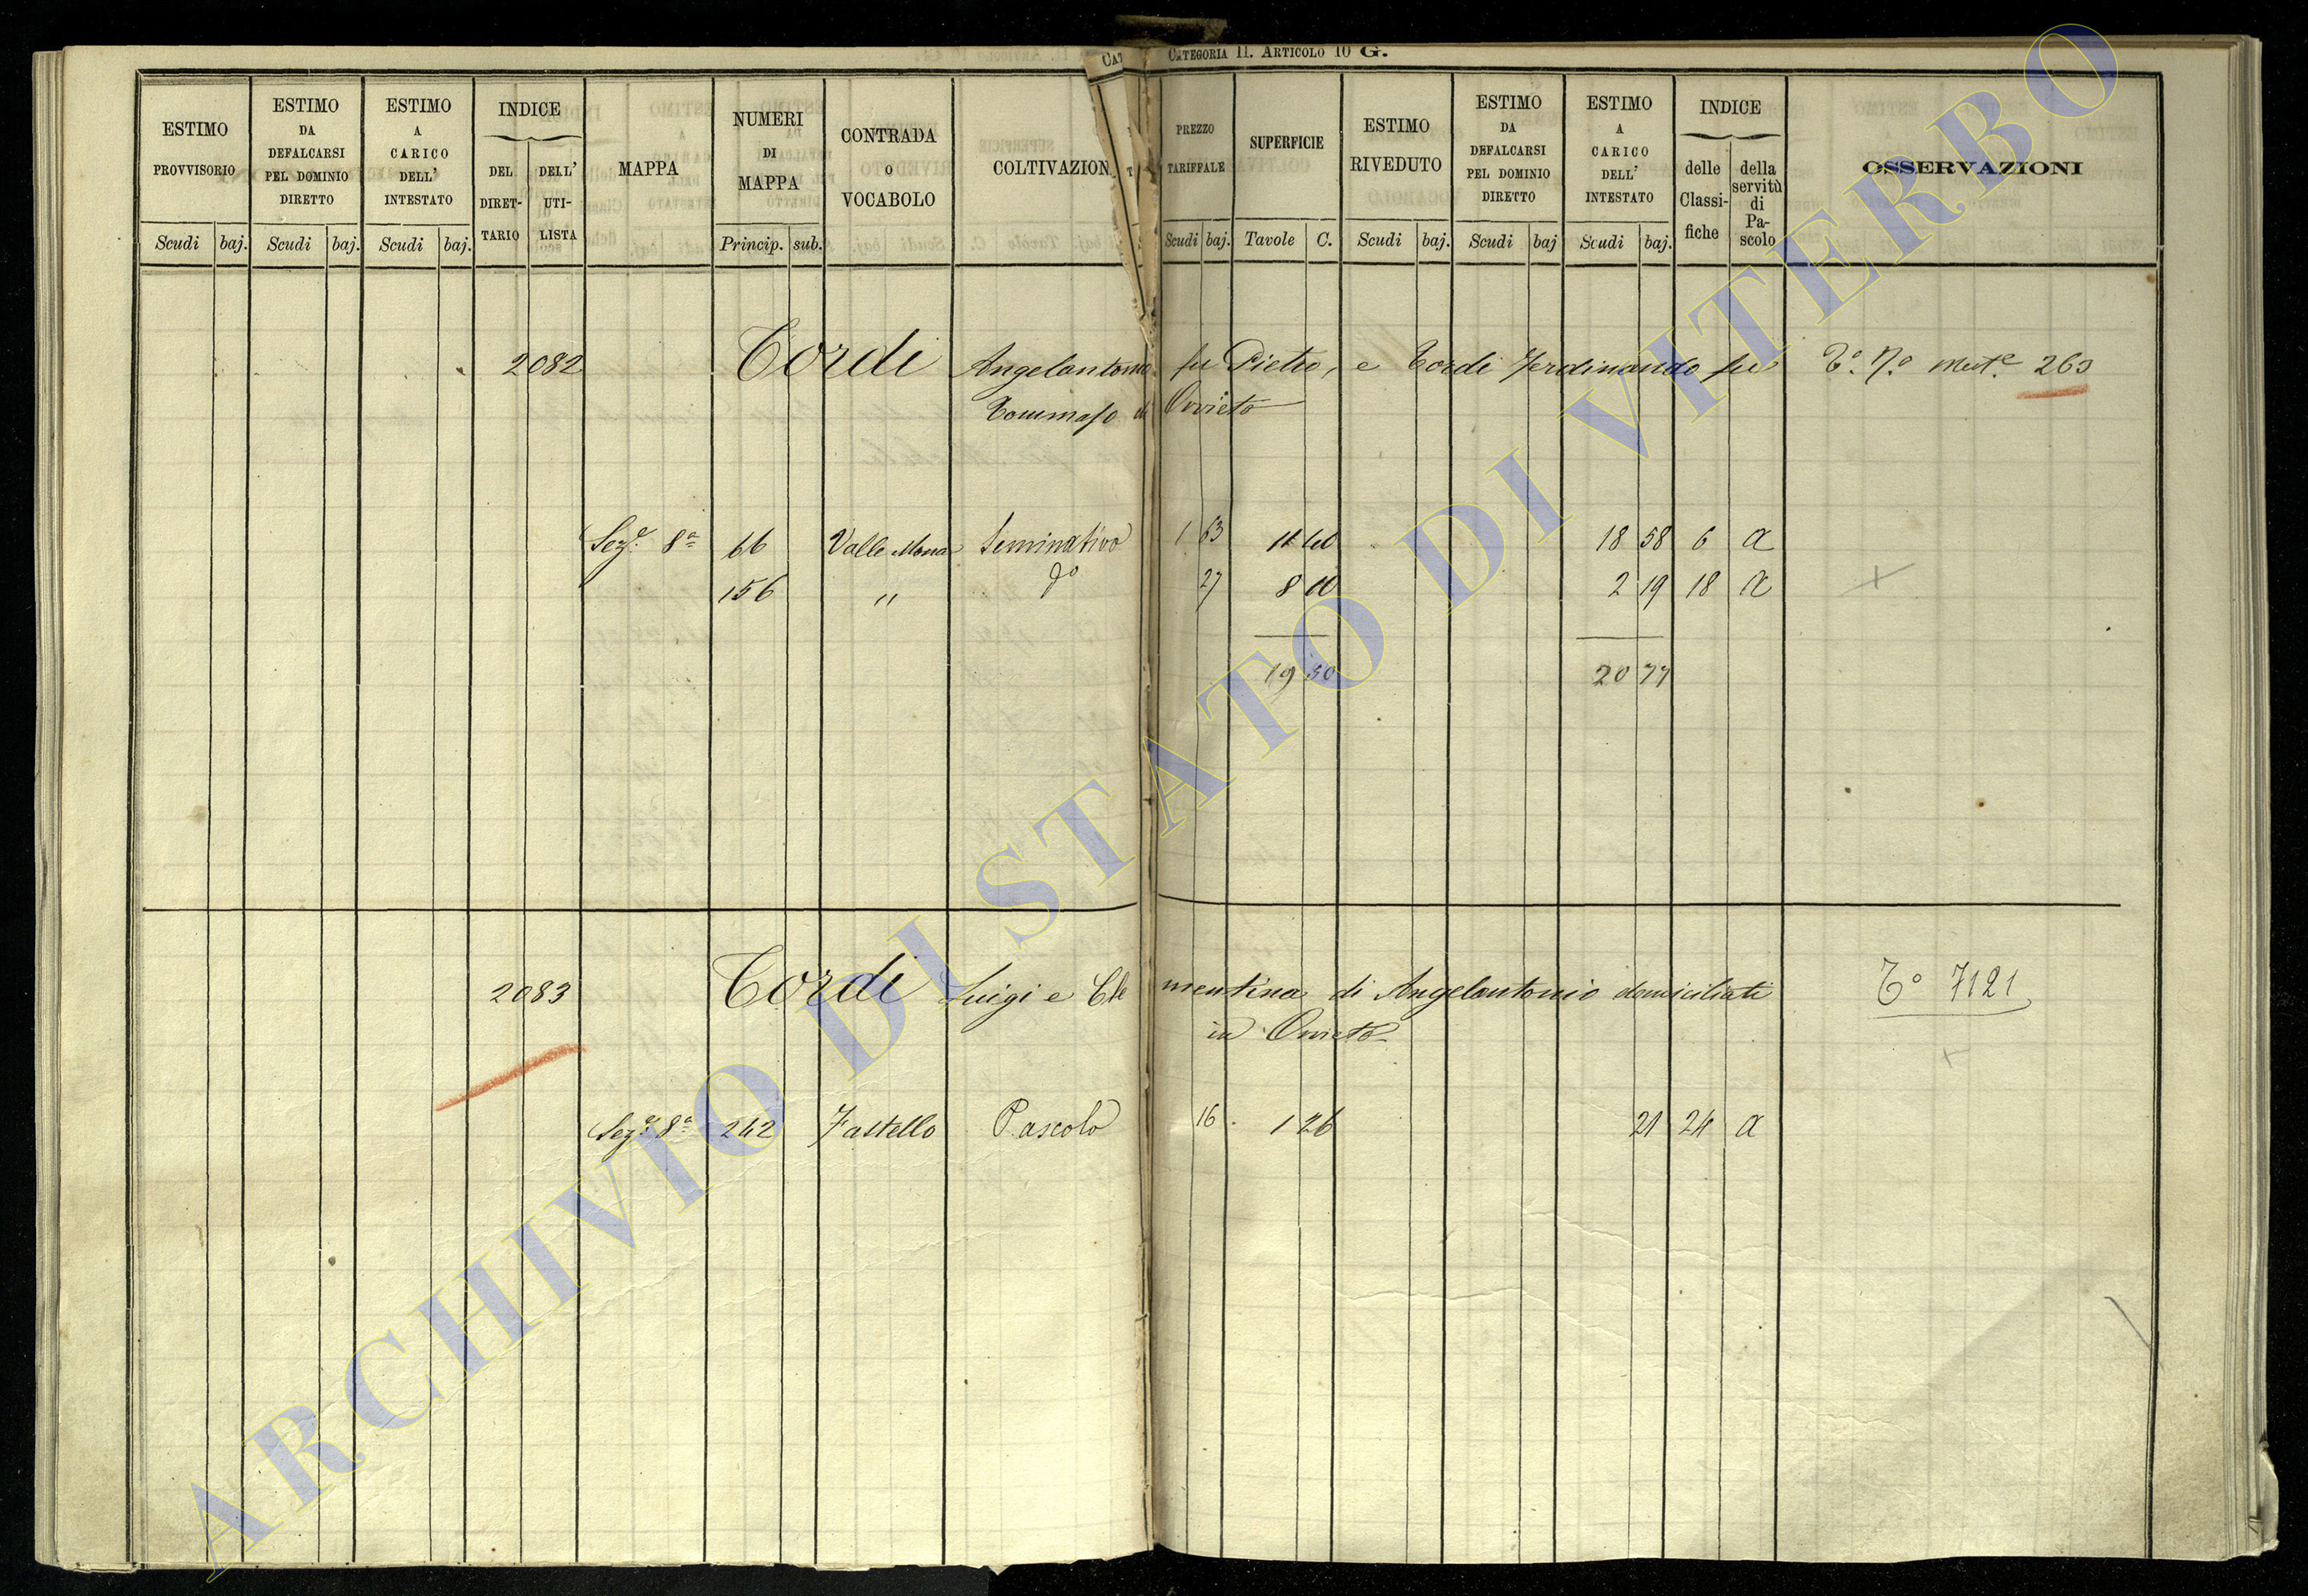 CATEGORIA II. ARTICOLO 10 G.
ESTIMO PROVVISORIO
Scudi baj.
ESTIMO DA DEFALCARSI PEL DOMINIO DIRETTO
Scudi baj.
ESTIMO A CARICO DELL' INTESTATO
Scudi baj.
INDICE
DEL DIRET-TARIO
DELL' UTI-LISTA
MAPPA
NUMERI DI MAPPA
Princip. sub.
CONTRADA O VOCABOLO
COLTIVAZION
PREZZO TARIFFALE
Scudi baj.
SUPERFICIE
Tavole C.
ESTIMO RIVEDUTO
Scudi baj.
ESTIMO DA DEFALCARSI PEL DOMINIO DIRETTO
Scudi baj
ESTIMO A CARICO DELL' INTESTATO
Scudi baj.
INDICE
delle Classi-fiche
della servitù di Pa-scolo
OSSERVAZIONI
2082 Tordi Angelantonio fu Pietro, e Tordi Ferdinando fu 263
Tommaso di Orvieto
Sezе 8a 66 Valle Mona Seminativo 1 63 11 40 18 58 6 a
156 " do 27 8 10 2 19 18 a
19 50 20 77
2083 Tordi Luigi e Clementina di Angelantonio domiciliati To 7121
in Orvieto
Seze 8a 242 Fastello Pascolo 16 1 26 21 24 a
ARCHIVIO DI STATO DI VITERBO